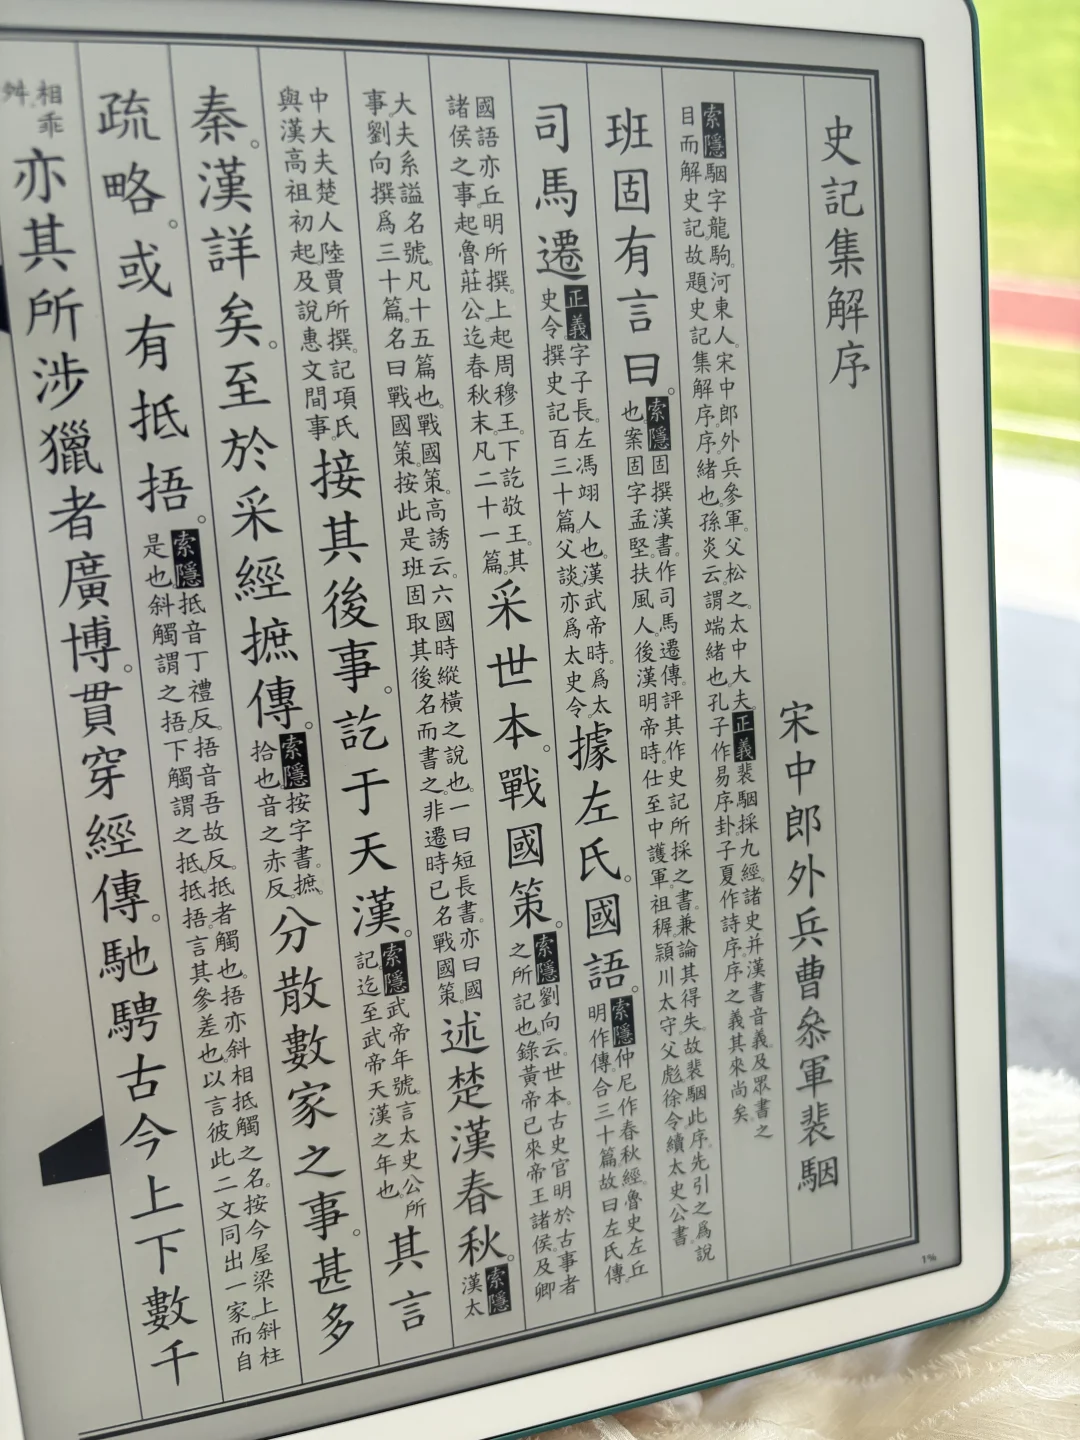 史記集解序
宋中郎外兵曹叅軍裴駰
索隱駰字龍駒。河東人。宋中郎外兵參軍。父松之。太中大夫。正義裴駰採九經諸史并漢書音義及眾書之目而解史記。故題史記集解序。序緒也。孫炎云。謂端緒也。孔子作易序卦。子夏作詩序。序之義其來尚矣。
班固有言曰。索隱固撰漢書。作司馬遷傳。評其作史記所採之書。兼論其得失。故裴駰此序。先引之爲說也。案固字孟堅。扶風人。後漢明帝時。仕至中護軍。祖稺。潁川太守。父彪。徐令。續太史公書。
司馬遷正義字子長。左馮翊人也。漢武帝時。爲太史令。撰史記百三十篇。父談。亦爲太史令。據左氏。國語。索隱仲尼作春秋經。魯史左丘明作傳。合三十篇。故曰左氏傳。
國語亦丘明所撰。上起周穆王。下訖敬王。其諸侯之事。起魯莊公。迄春秋末。凡二十一篇。采世本。戰國策。索隱劉向云。世本。古史官明於古事者之所記也。錄黃帝已來帝王諸侯。及卿
大夫系謚名號。凡十五篇也。戰國策。高誘云。六國時縱橫之說也。一曰短長書。亦曰國事。劉向撰爲三十篇。名曰戰國策。按此是班固取其後名而書之。非遷時已名戰國策。述楚漢春秋。索隱漢太
中大夫楚人陸賈所撰。記項氏與漢高祖初起。及說惠文間事。接其後事。訖于天漢。索隱武帝年號。言太史公所記迄至武帝天漢之年也。其言
秦。漢詳矣。至於采經摭傳。索隱按字書。摭。拾也。音之赤反。分散數家之事。甚多
疏略。或有抵捂。索隱抵音丁禮反。捂音吾故反。抵者觸也。捂亦斜相抵觸之名。按今屋梁上斜柱是也。斜觸謂之捂。下觸謂之抵。抵捂。言其參差也。以言彼此二文同出一家而自
相乖舛。亦其所涉獵者廣博。貫穿經傳。馳騁古今上下數千
1%